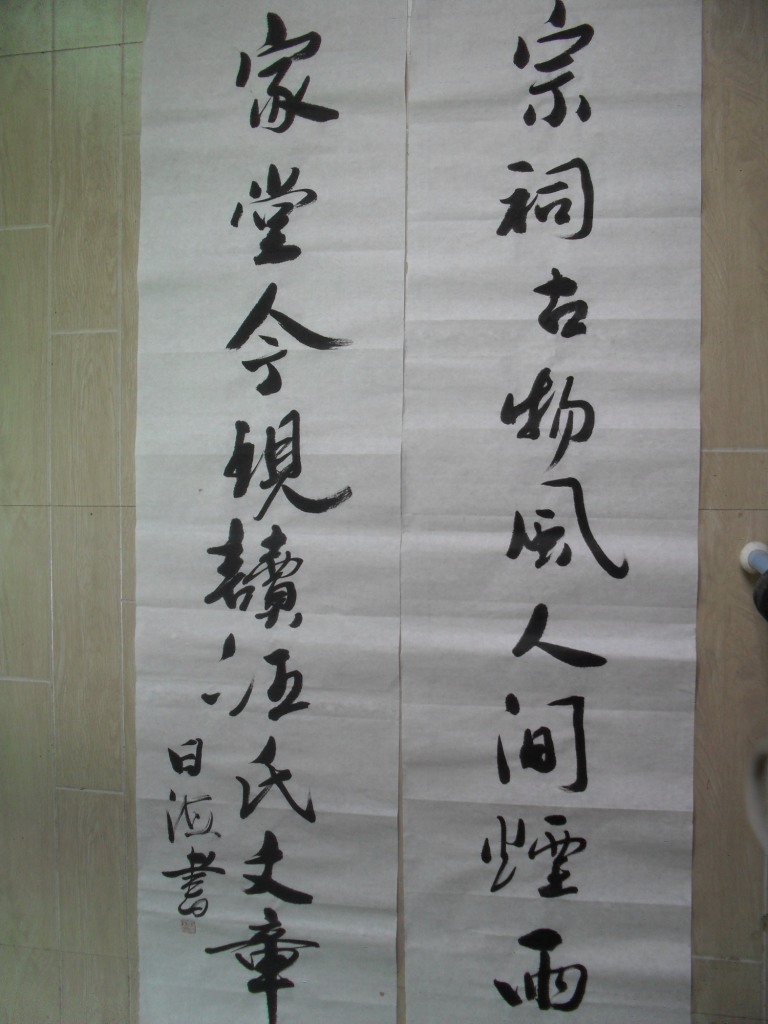 宗祠古物風人間煙雨
家堂今現氏文章
日書